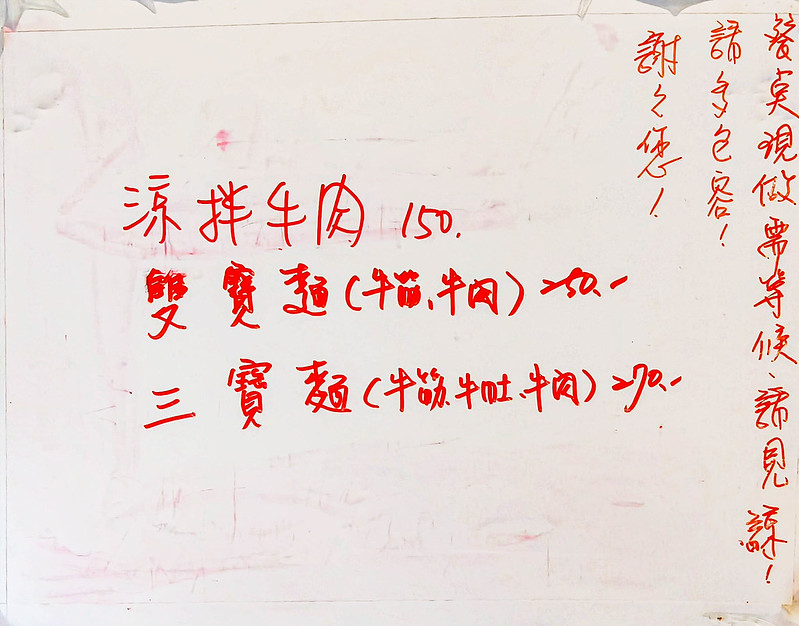 餐点現做需等候、請見諒!
請多包容!
謝々您!
涼拌牛肉 150.
雙寶麵(牛筋、牛肉)250.-
三寶麵(牛筋、牛肚、牛肉)270.-